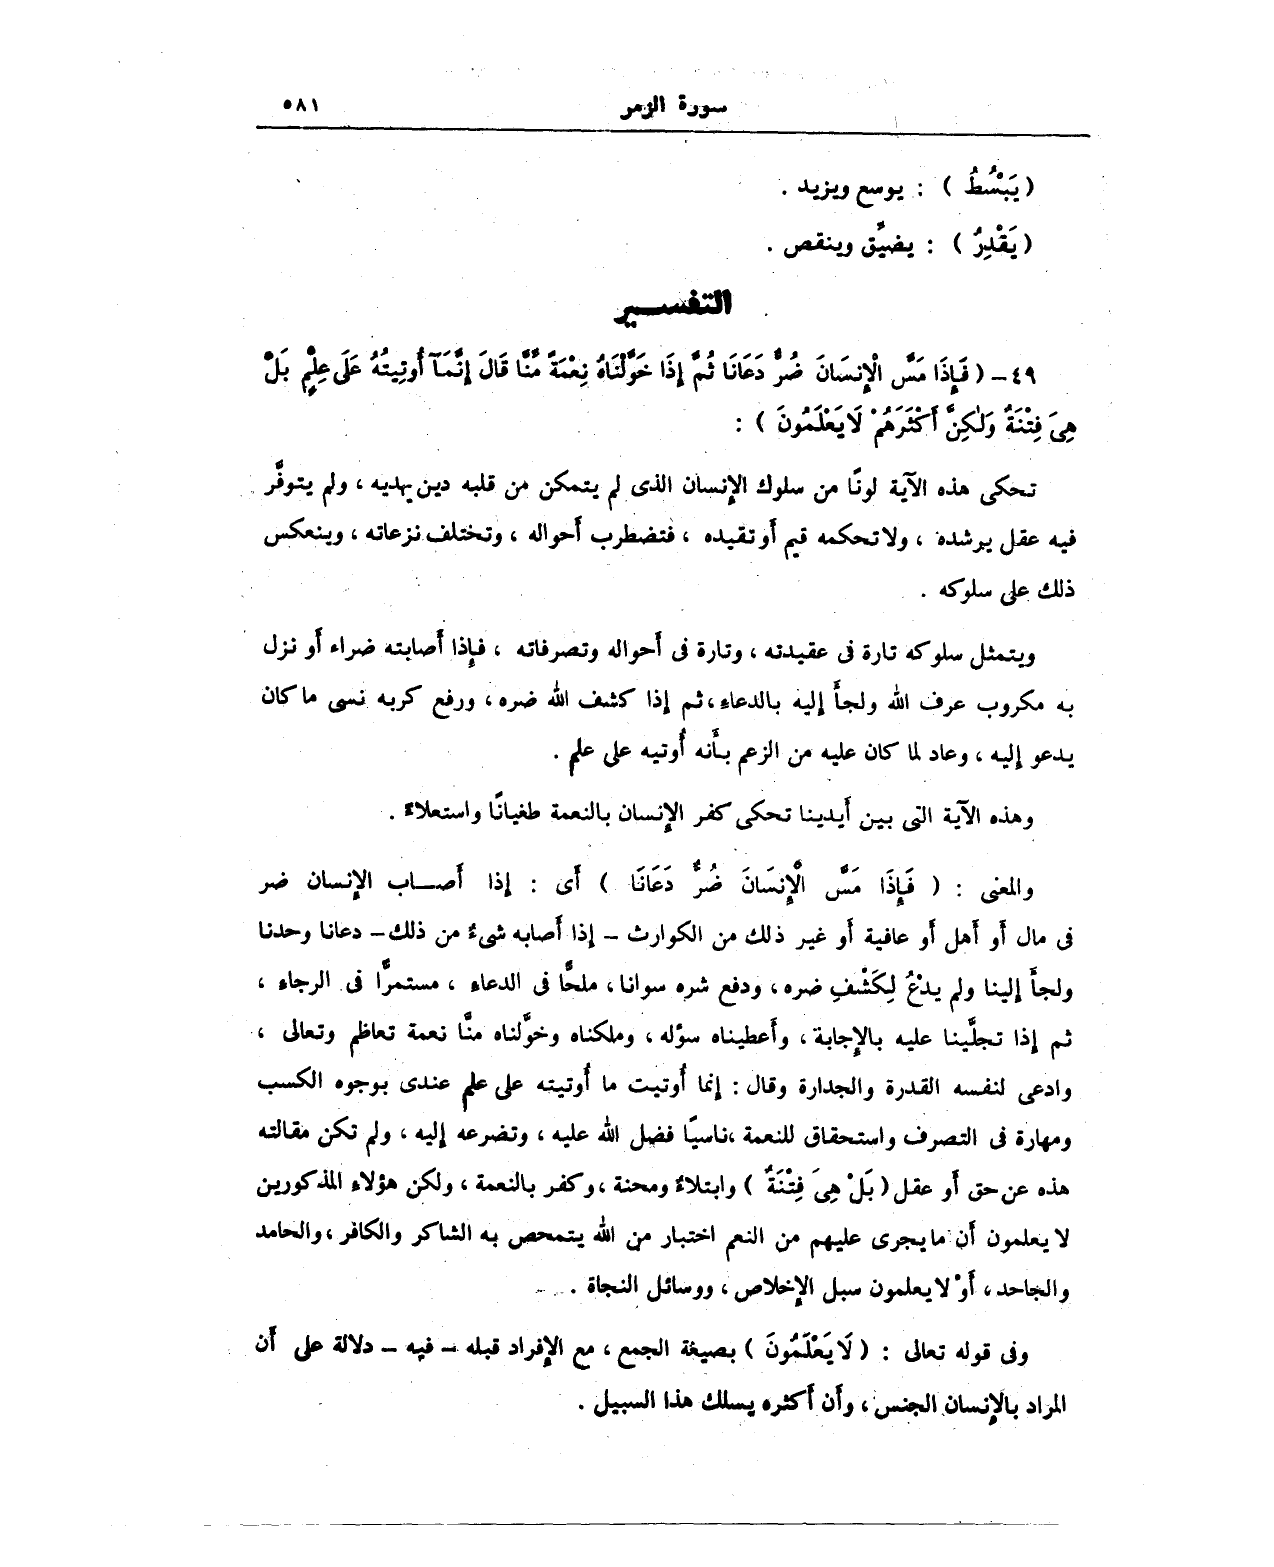 سورة الزمر ٥٨١
( يَبْسُطُ ) : يوسع ويزيد .
( يَقْدِرُ ) : يضيِّق وينقص .
التفسير
٤٩- ( فَإِذَا مَسَّ الْإِنسَانَ ضُرٌّ دَعَانَا ثُمَّ إِذَا خَوَّلْنَاهُ نِعْمَةً مِّنَّا قَالَ إِنَّمَآ أُوتِيتُهُ عَلَى عِلْمٍ بَلْ
هِىَ فِتْنَةٌ وَلَٰكِنَّ أَكْثَرَهُمْ لَا يَعْلَمُونَ ) :
تحكى هذه الآية لونًا من سلوك الإنسان الذى لم يتمكن من قلبه دين يهديه ، ولم يتوفَّر
فيه عقل يرشده ، ولا تحكمه قيم أو تقيده ، فتضطرب أحواله ، وتختلف نزعاته ، وينعكس
ذلك على سلوكه .
ويتمثل سلوكه تارة فى عقيدته ، وتارة فى أحواله وتصرفاته ، فإذا أصابته ضراء أو نزل
به مكروب عرف الله ولجأ إليه بالدعاء ، ثم إذا كشف الله ضره ، ورفع كربه نسى ما كان
يدعو إليه ، وعاد لما كان عليه من الزعم بأنه أُوتيه على علم .
وهذه الآية التى بين أيدينا تحكى كفر الإنسان بالنعمة طغيانًا واستعلاءً .
والمعنى : ( فَإِذَا مَسَّ الْإِنسَانَ ضُرٌّ دَعَانَا ) أى : إذا أصـــاب الإنسان ضر
فى مال أو أهل أو عافية أو غير ذلك من الكوارث - إذا أصابه شىءٌ من ذلك - دعانا وحدنا
ولجأ إلينا ولم يدْعُ لِكَشْفِ ضره ، ودفع شره سوانا ، ملحًّا فى الدعاء ، مستمرًّا فى الرجاء ،
ثم إذا تجلَّينا عليه بالإجابة ، وأعطيناه سؤله ، وملكناه وخوَّلناه منَّا نعمة تعاظم وتعالى ،
وادعى لنفسه القدرة والجدارة وقال : إنما أُوتيت ما أُوتيته على علم عندى بوجوه الكسب
ومهارة فى التصرف واستحقاق للنعمة ، ناسيًا فضل الله عليه ، وتضرعه إليه ، ولم تكن مقالته
هذه عن حق أو عقل ( بَلْ هِىَ فِتْنَةٌ ) وابتلاءٌ ومحنة ، وكفر بالنعمة ، ولكن هؤلاء المذكورين
لا يعلمون أن ما يجرى عليهم من النعم اختبار من الله يتمحص به الشاكر والكافر ، والحامد
والجاحد ، أوْ لا يعلمون سبل الإخلاص ، ووسائل النجاة .
وفى قوله تعالى : ( لَا يَعْلَمُونَ ) بصيغة الجمع ، مع الإفراد قبله - فيه - دلالة على أن
المراد بالإنسان الجنس ، وأن أكثره يسلك هذا السبيل .